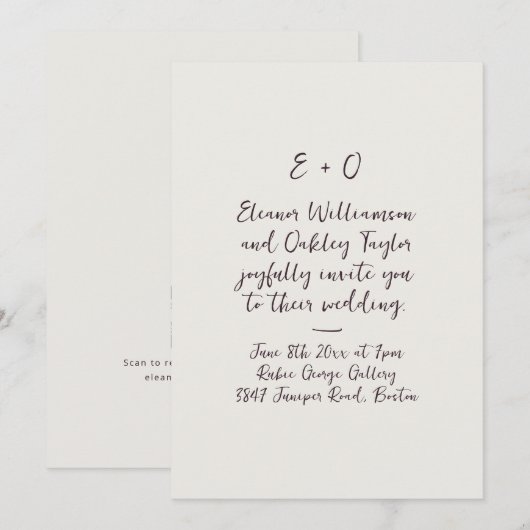 E + O
Eleanor Williamson
and Oakley Taylor
joyfully invite you
to their wedding.
June 8th 20xx at 7pm
Rubie George Gallery
3847 Juniper Road, Boston
Scan to